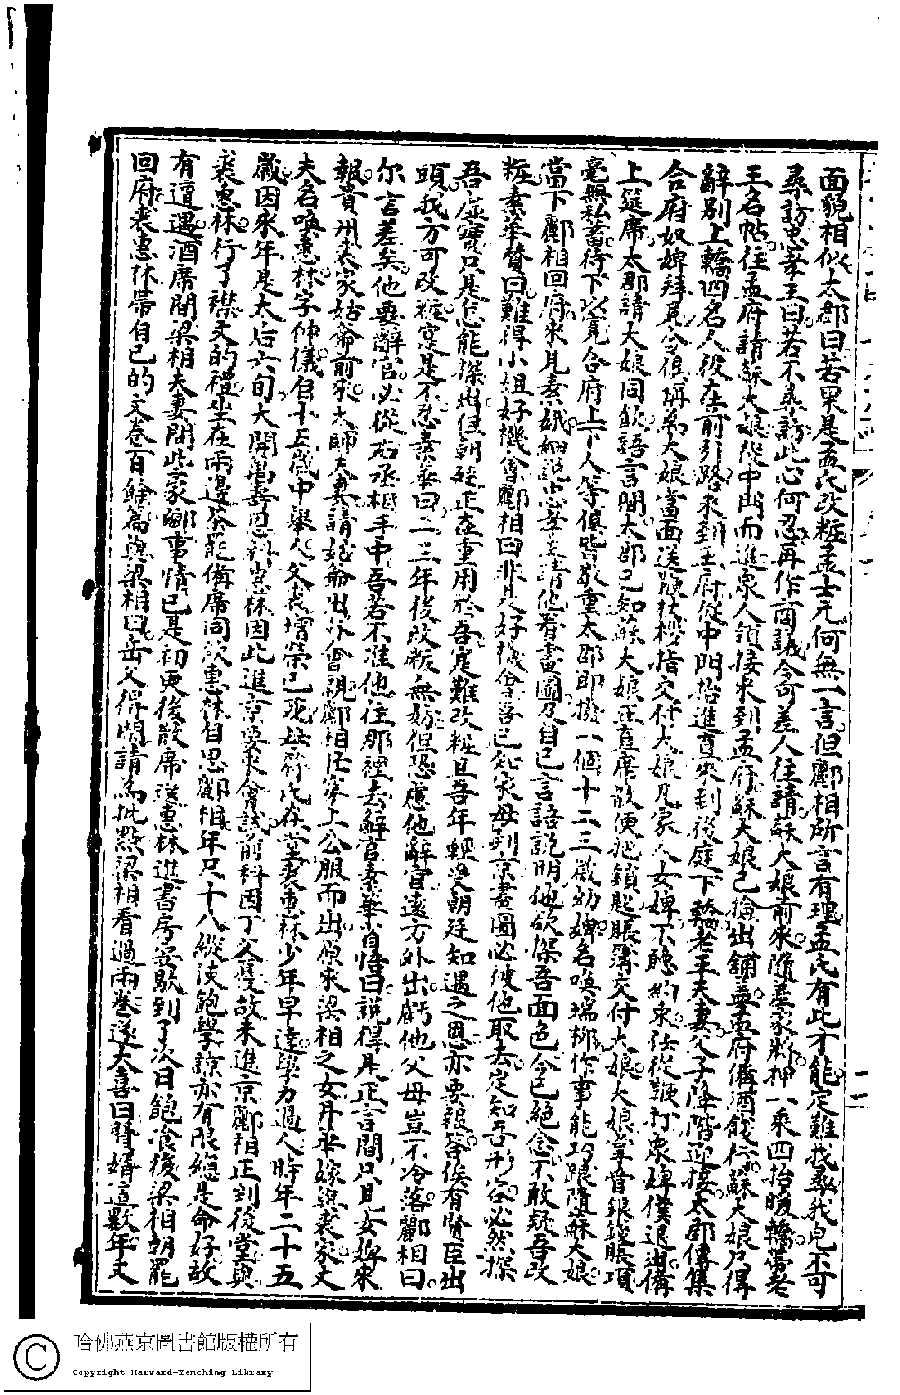 面貌相似太郡曰若果是孟氏改粧孟士元何無一言但酈相所言有理孟氏有此才能定難找尋我兒不可
尋訪忠孝王曰若不尋訪此心何忍再作商議令可差人往請蘇大娘前來隨並家將押一乘四抬暖轎帶老
王名帖往孟府請蘇大娘從中門而進衆人領接來到孟府蘇大娘已搶出舖蓋孟府備酒餞行蘇大娘只得
辭別上轎四名人役在前引路來到王府從中門抬進直來到後庭下轎老王夫妻父子降階迎接太郡傳集
合府奴婢拜見令俱稱為大娘當面送 交付大娘凡家人女婢不聽約束任從鞭打衆婢僕退進備
上筵席太郡請大娘同飲語言間太郡已知蘇大娘正直席散便把鎖匙賬簿交付大娘大娘掌管銀錢賬項
毫無私蓄待下以寬合府上下人等俱皆敬重太郡即撥一個十二三歲幼婢名喚瑞柳作事能巧跟隨蘇大娘
當下酈相回府來見素娥細說忠孝王請他看畫圖及自己言語說明他欲傑吾面色今已絕念不敢疑吾改
粧素華贊曰難得小姐好機會酈相曰非是好機會吾已知家母到京畫圖必使他取去定知吾形容必然探
吾虛實只是怎能傑出但朝廷正在重用於吾是難改粧且吾年輕受朝廷知遇之恩亦要報答俟有賢臣出
頭我方可改粧定是不忍素華曰二三年後改粧無妨但恐慮他辭官遠方外出虧他父母豈不冷落酈相曰
尔言差矣他要辭官必從右丞相手中吾若不准他往那裡去辭官素華省悟曰說得是正言間只見女婢來
報貴州袁家姑爺前來太師夫妻請姑爺出外會親酈相任穿上公服而出原來梁相之女丹華嫁與裘家丈
夫名喚惠林字仲儀自十五歲中舉人父裘增榮已死母符氏在堂裘惠林少年早達學力過人時年二十五
歲因來年是太后六旬大開萬壽恩科惠林因此進京要來會試前科因丁父憂故未進京酈相正到後堂與
裘惠林行了襟丈的禮坐在兩邊茶罷備席同飲惠林自思酈相年只十八縱使飽學諒亦有限總是命好故
有遭遇酒席間梁相夫妻問些家鄉事情已是初更後散席送惠林進書房安歇到了次日飽飡後梁相朝罷
回府裘惠林帶自己的文卷百餘篇與梁相曰岳父得閒請為批點梁相看過兩卷遂大喜曰賢婿這數年文
哈佛燕京圖書館版權所有
Copyright Harvard-Yenching Library